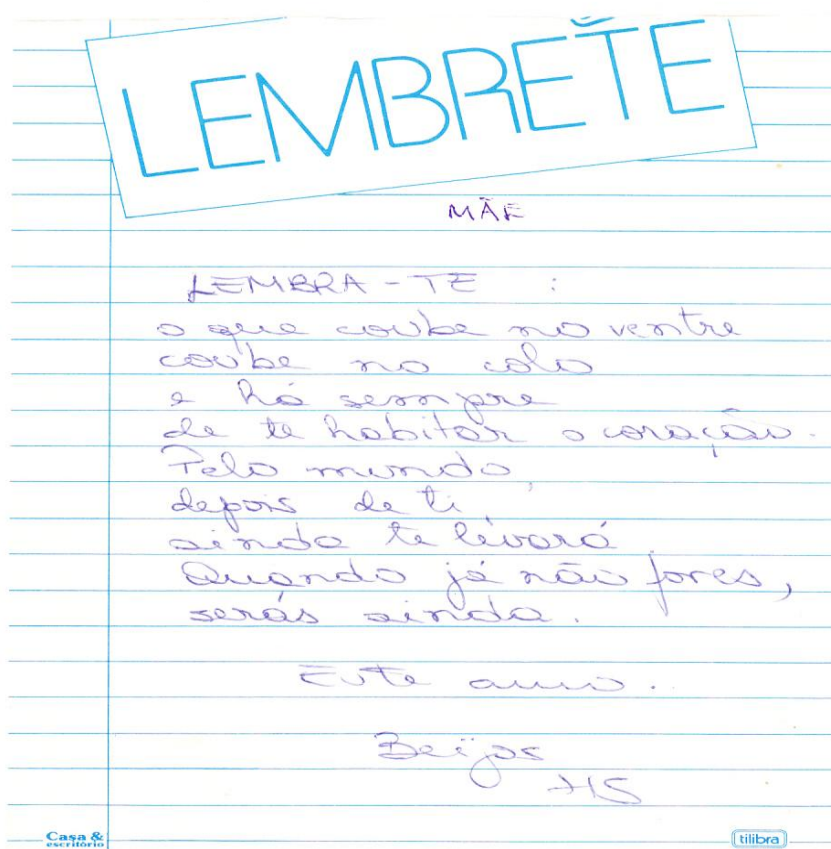 LEMBRETE
MÃE
LEMBRA-TE :
o que coube no ventre
coube no colo
e há sempre
de te habitar o coração.
Pelo mundo,
depois de ti,
ainda te levará
Quando já não fores,
serás ainda.
Eu te amo.
Beijos
HS
Casa &
escritório
tilibra